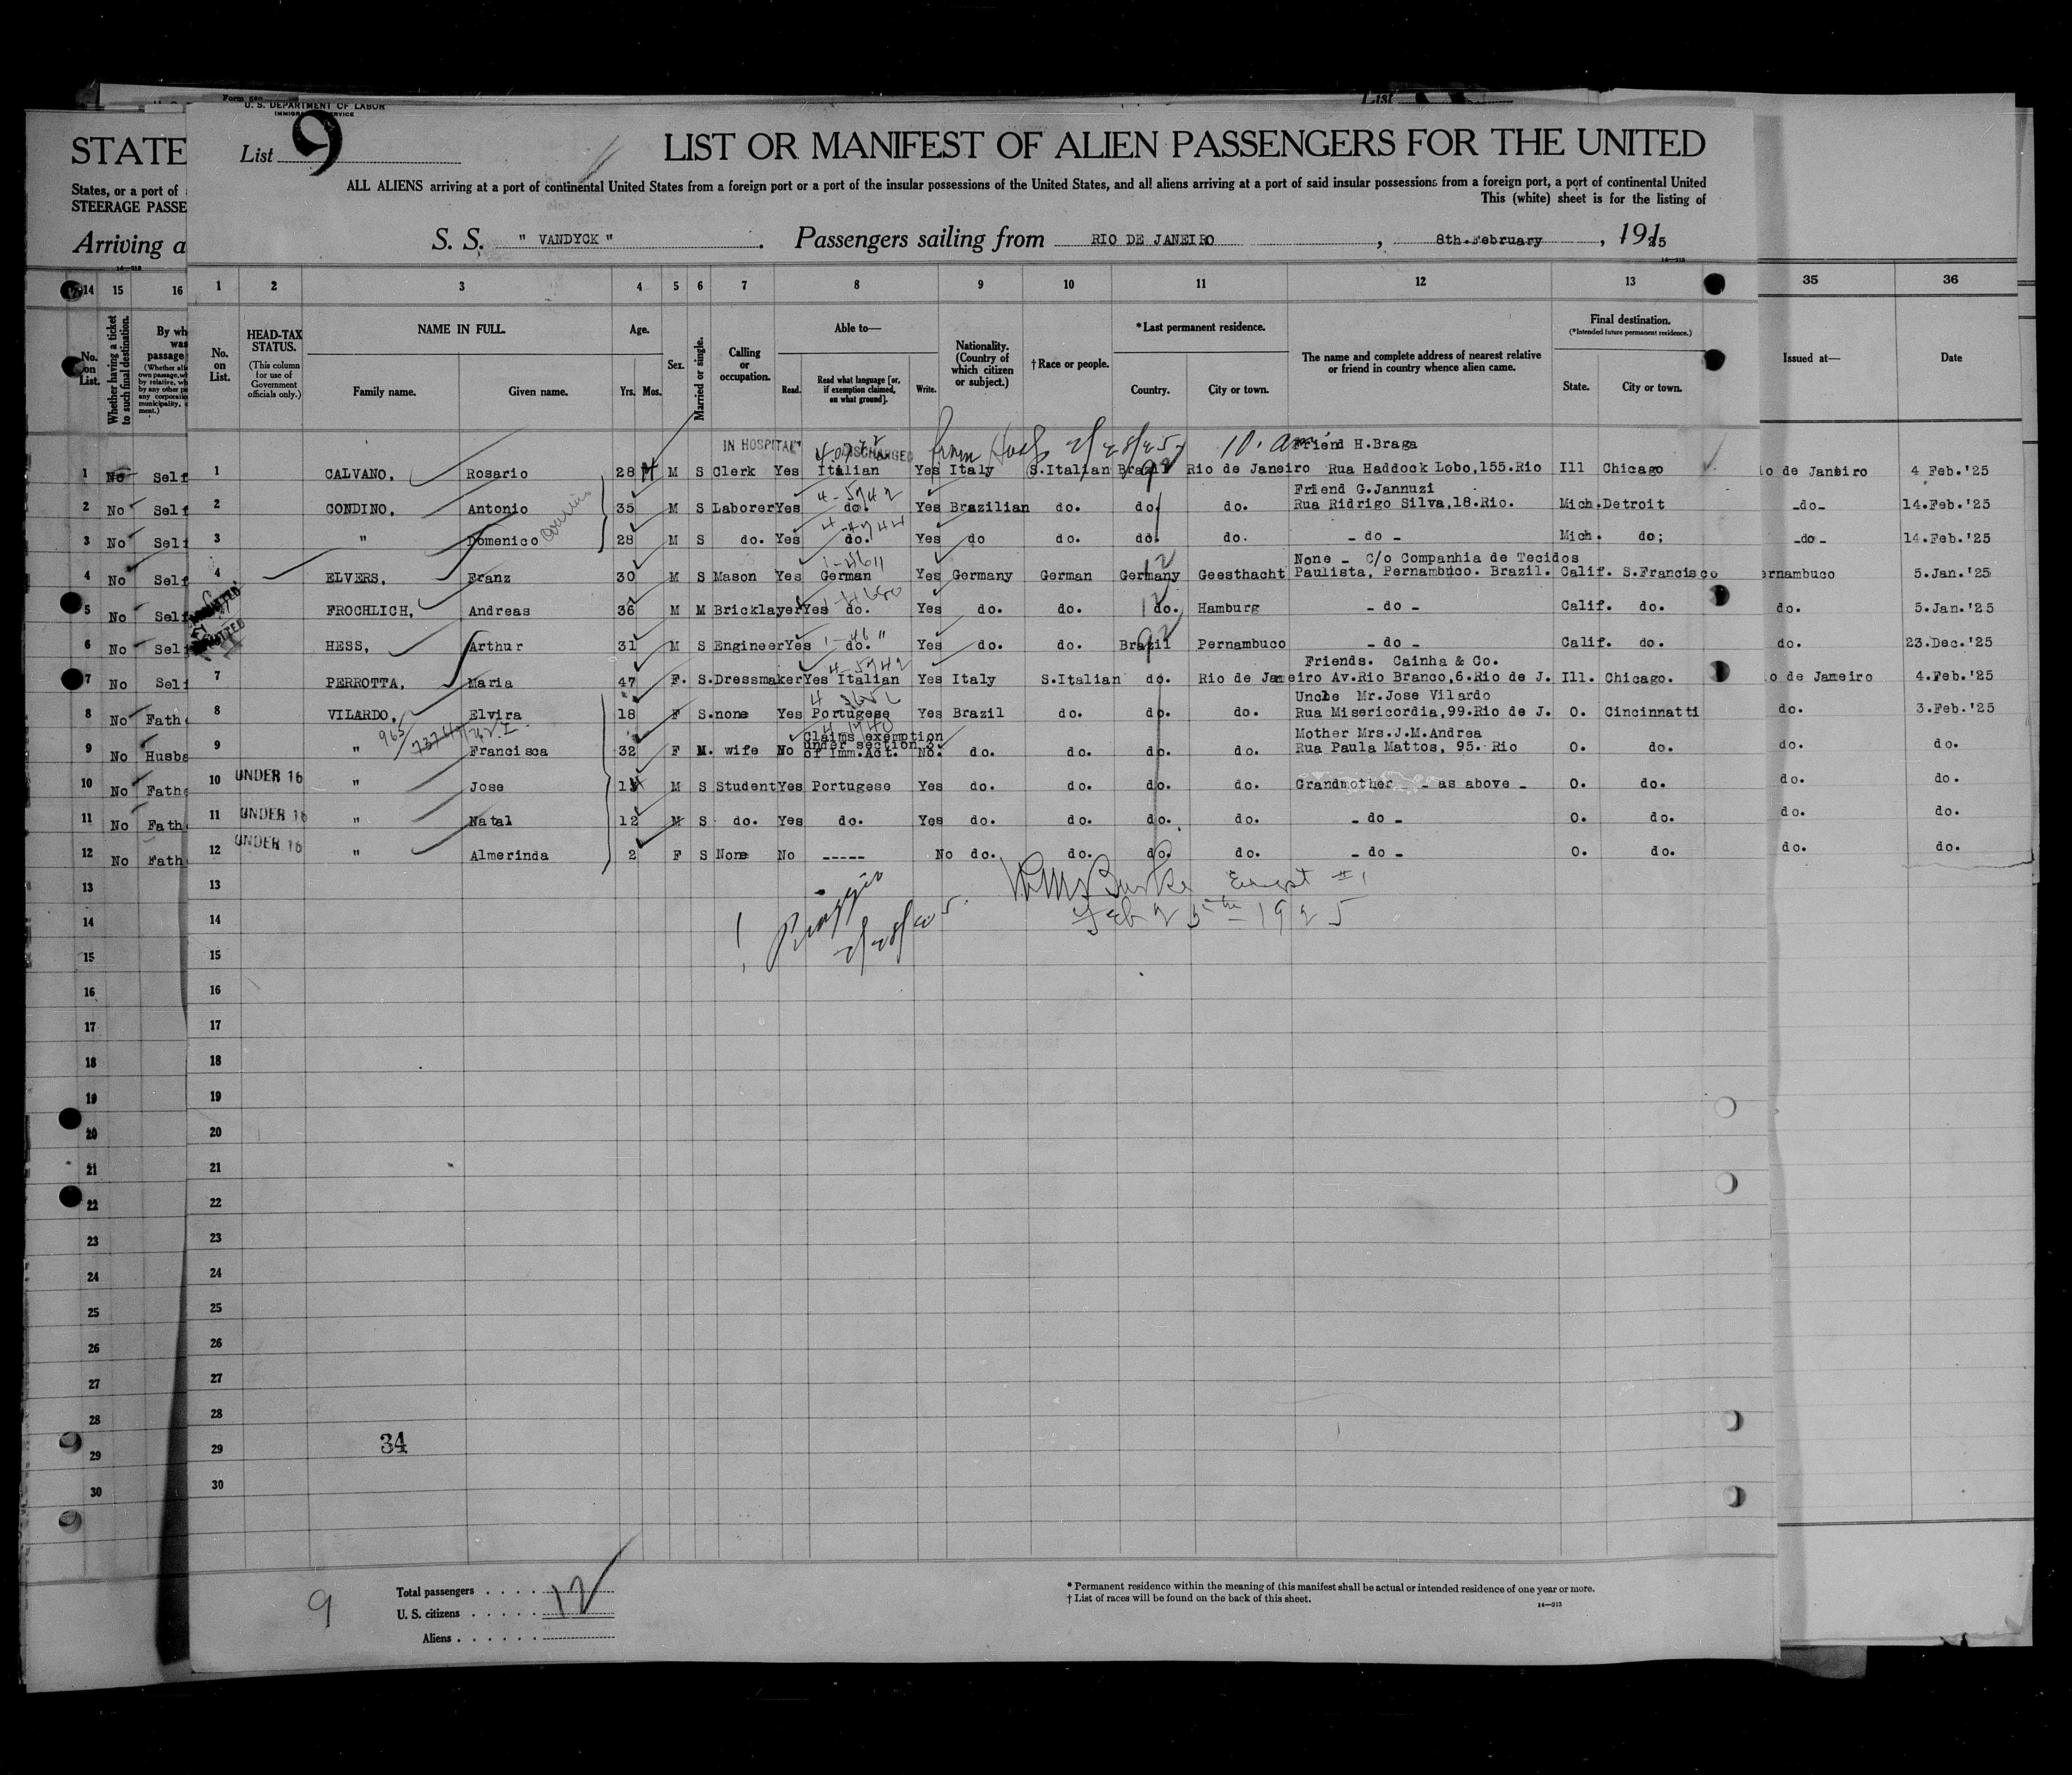 Form 680
U. S. DEPARTMENT OF LABOR
List 9
LIST OR MANIFEST OF ALIEN PASSENGERS FOR THE UNITED
STATE
ALL ALIENS arriving at a port of continental United States from a foreign port or a port of the insular possessions of the United States, and all aliens arriving at a port of said insular possessions from a foreign port, a port of continental United
States, or a port of
This (white) sheet is for the listing of
STEERAGE PASSE
S. S. " VANDYCK " . Passengers sailing from RIO DE JANEIRO , 8th.February , 1925
Arriving a
14 15 16 1 2 3 4 5 6 7 8 9 10 11 12 13 35 36
No. on List. Whether having a ticket to such final destination. By wh was passage
No. on List. HEAD-TAX STATUS. (This column for use of Government officials only.) NAME IN FULL. Family name. Given name. Age. Yrs. Mos. Sex. Married or single. Calling or occupation. Able to— Read. Read what language [or, if exemption claimed, on what ground]. Write. Nationality. (Country of which citizen or subject.) †Race or people. *Last permanent residence. Country. City or town. The name and complete address of nearest relative or friend in country whence alien came. Final destination. (*Intended future permanent residence.) State. City or town. Issued at— Date
IN HOSPITAL DISCHARGED from Hosp 2/28/25 10. am Friend H.Braga
1 No Self 1 CALVANO, Rosario 28 M S Clerk Yes Italian Yes Italy S.Italian Brazil Rio de Janeiro Rua Haddock Lobo,155.Rio Ill Chicago io de Janeiro 4 Feb.'25
4-5742 Friend G.Jannuzi
2 No Self 2 CONDINO, Antonio 35 M S Laborer Yes do. Yes Brazilian do. do. do. Rua Ridrigo Silva,18.Rio. Mich. Detroit -do- 14.Feb.'25
3 No Self 3 " Domenico 28 M S do. Yes do. Yes do do. do. do. - do - Mich. do; -do- 14.Feb.'25
None - C/o Companhia de Tecidos
4 No Self 4 ELVERS, Franz 30 M S Mason Yes German Yes Germany German Germany Geesthacht Paulista, Pernambuco. Brazil. Calif. S.Francisco ernambuco 5.Jan.'25
5 No Self FROCHLICH, Andreas 36 M M Bricklayer Yes do. Yes do. do. do. Hamburg - do - Calif. do. do. 5.Jan.'25
6 No Sel HESS, Arthur 31 M S Engineer Yes do. Yes do. do. Brazil Pernambuco - do - Calif. do. do. 23.Dec.'25
4-5742 Friends. Cainha & Co.
7 No Self 7 PERROTTA, Maria 47 F. S. Dressmaker Yes Italian Yes Italy S.Italian do. Rio de Janeiro Av.Rio Branco,6.Rio de J. Ill. Chicago. io de Janeiro 4.Feb.'25
Uncle Mr.Jose Vilardo
8 No Fath 8 VILARDO, Elvira 18 F S. none Yes Portugese Yes Brazil do. do. do. Rua Misericordia,99.Rio de J. O. Cincinnatti do. 3.Feb.'25
Claims exemption Mother Mrs.J.M.Andrea
under section 3.
9 No Husba 9 " Francisca 32 F M. wife No of Imm.Act. No. do. do. do. do. Rua Paula Mattos, 95. Rio O. do. do. do.
10 No Fath 10 UNDER 16 " Jose M S Student Yes Portugese Yes do. do. do. do. Grandmother - as above - O. do. do. do.
11 No Fath 11 UNDER 16 " Natal 12 M S do. Yes do. Yes do. do. do. do. - do - O. do. do. do.
12 No Fath 12 UNDER 16 " Almerinda 2 F S None No ----- No do. do. do. do. - do - O. do. do. do.
13 13
Feb 25th 1925
14 14
2/28/25
15 15
16 16
17 17
18 18
19 19
20 20
21 21
22 22
23 23
24 24
25 25
26 26
27 27
28 28
29 29 34
30 30
9
Total passengers 12
U. S. citizens
Aliens
* Permanent residence within the meaning of this manifest shall be actual or intended residence of one year or more.
† List of races will be found on the back of this sheet.
14—213